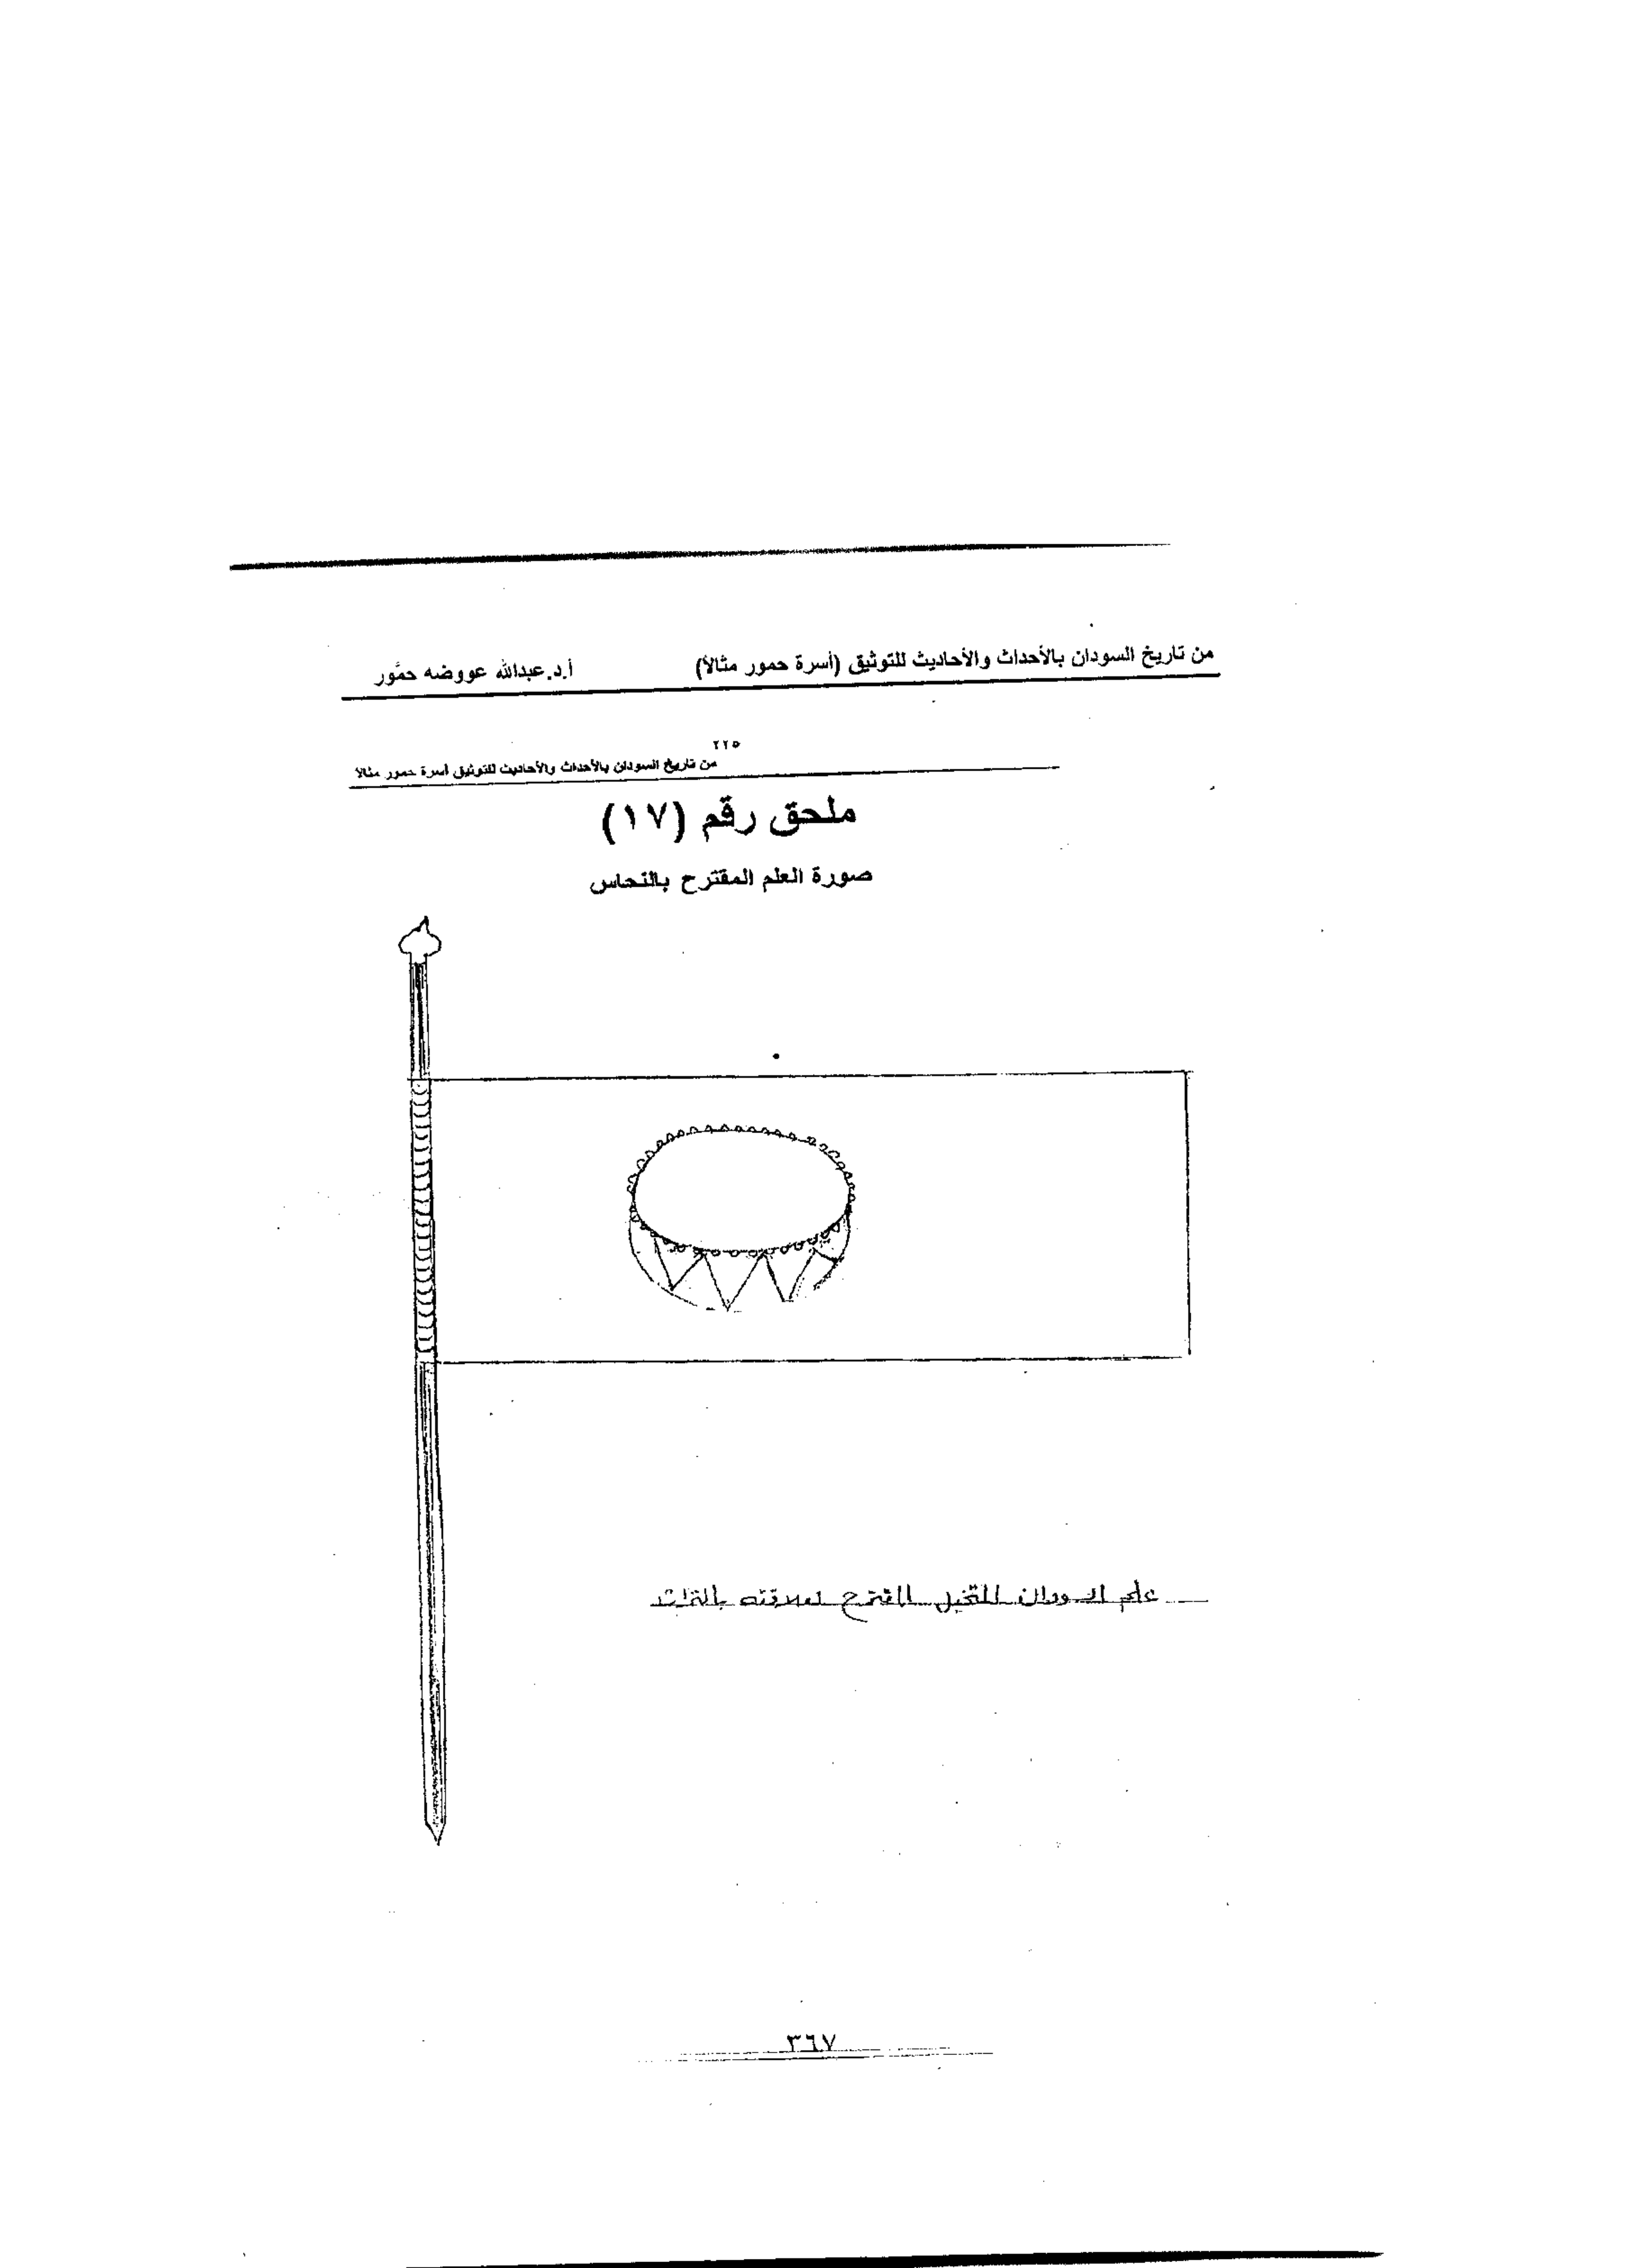 من تاريخ السودان بالأحداث والأحاديث للتوثيق (أسرة حمور مثالاً) أ.د.عبدالله عووضه حمَّور
٢٢٥
من تاريخ السودان بالأحداث والأحاديث للتوثيق أسرة حمور مثالا
ملحق رقم (١٧)
صورة العلم المقترح بالنحاس
علم السودان المقترح لعلاقته بالتراث
٣٦٧